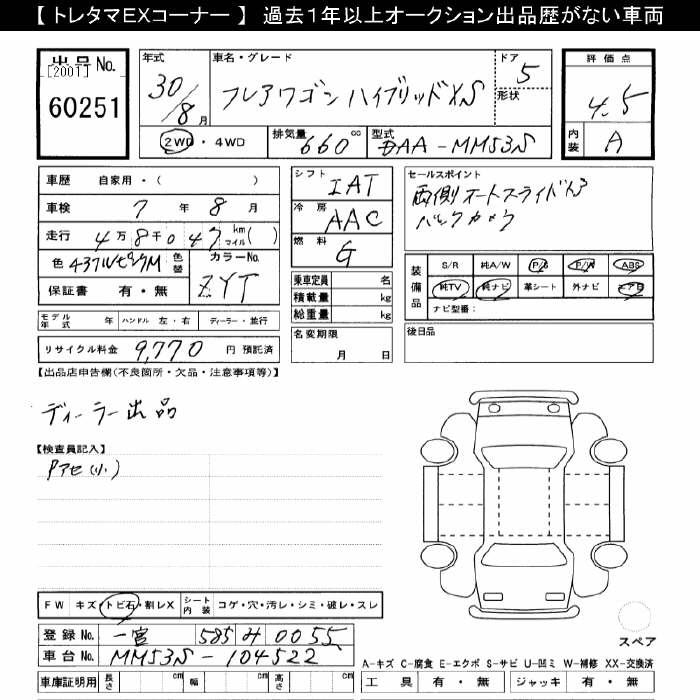 【 トレタマEXコーナー 】 過去１年以上オークション出品歴がない車両
出品 No.
[2001]
60251
年式
30/8 月
車名・グレード
フレアワゴン ハイブリッドXS
ドア
5
形状
2WD ・ 4WD
排気量 660 cc
型式 DAA-MM53S
評価点
4.5
内装 A
車歴 自家用・( )
車検 7 年 8 月
走行 4万8千047 km マイル( )
色 437Wピンク M 色替
カラーNo.
ZYT
保証書 有・無
モデル年式 年 ハンドル 左・右 ディーラー・並行
リサイクル料金 9,770 円 預託済
シフト IAT
冷房 AAC
燃料 G
乗車定員 名
積載量 kg
総重量 kg
名変期限
月 日
セールスポイント
両側オートスライドドア
バックカメラ
装備品
S/R 純A/W P/S P/W ABS
純TV 純ナビ 革シート 外ナビ エアB
ナビ型番：
後日品
【出品店申告欄(不良箇所・欠品・注意事項等)】
ディーラー出品
【検査員記入】
Pアセ(小)
FW キズ・トビ石・割レX
シート内装 コゲ・穴・汚レ・シミ・破レ・スレ
登録 No. 一宮 585 み 0055
車台 No. MM53S-104522
車庫証明用 長さ cm 幅 cm 高さ cm
スペア
A-キズ C-腐食 E-エクボ S-サビ U-凹ミ W-補修 XX-交換済
工具 有・無 ジャッキ 有・無